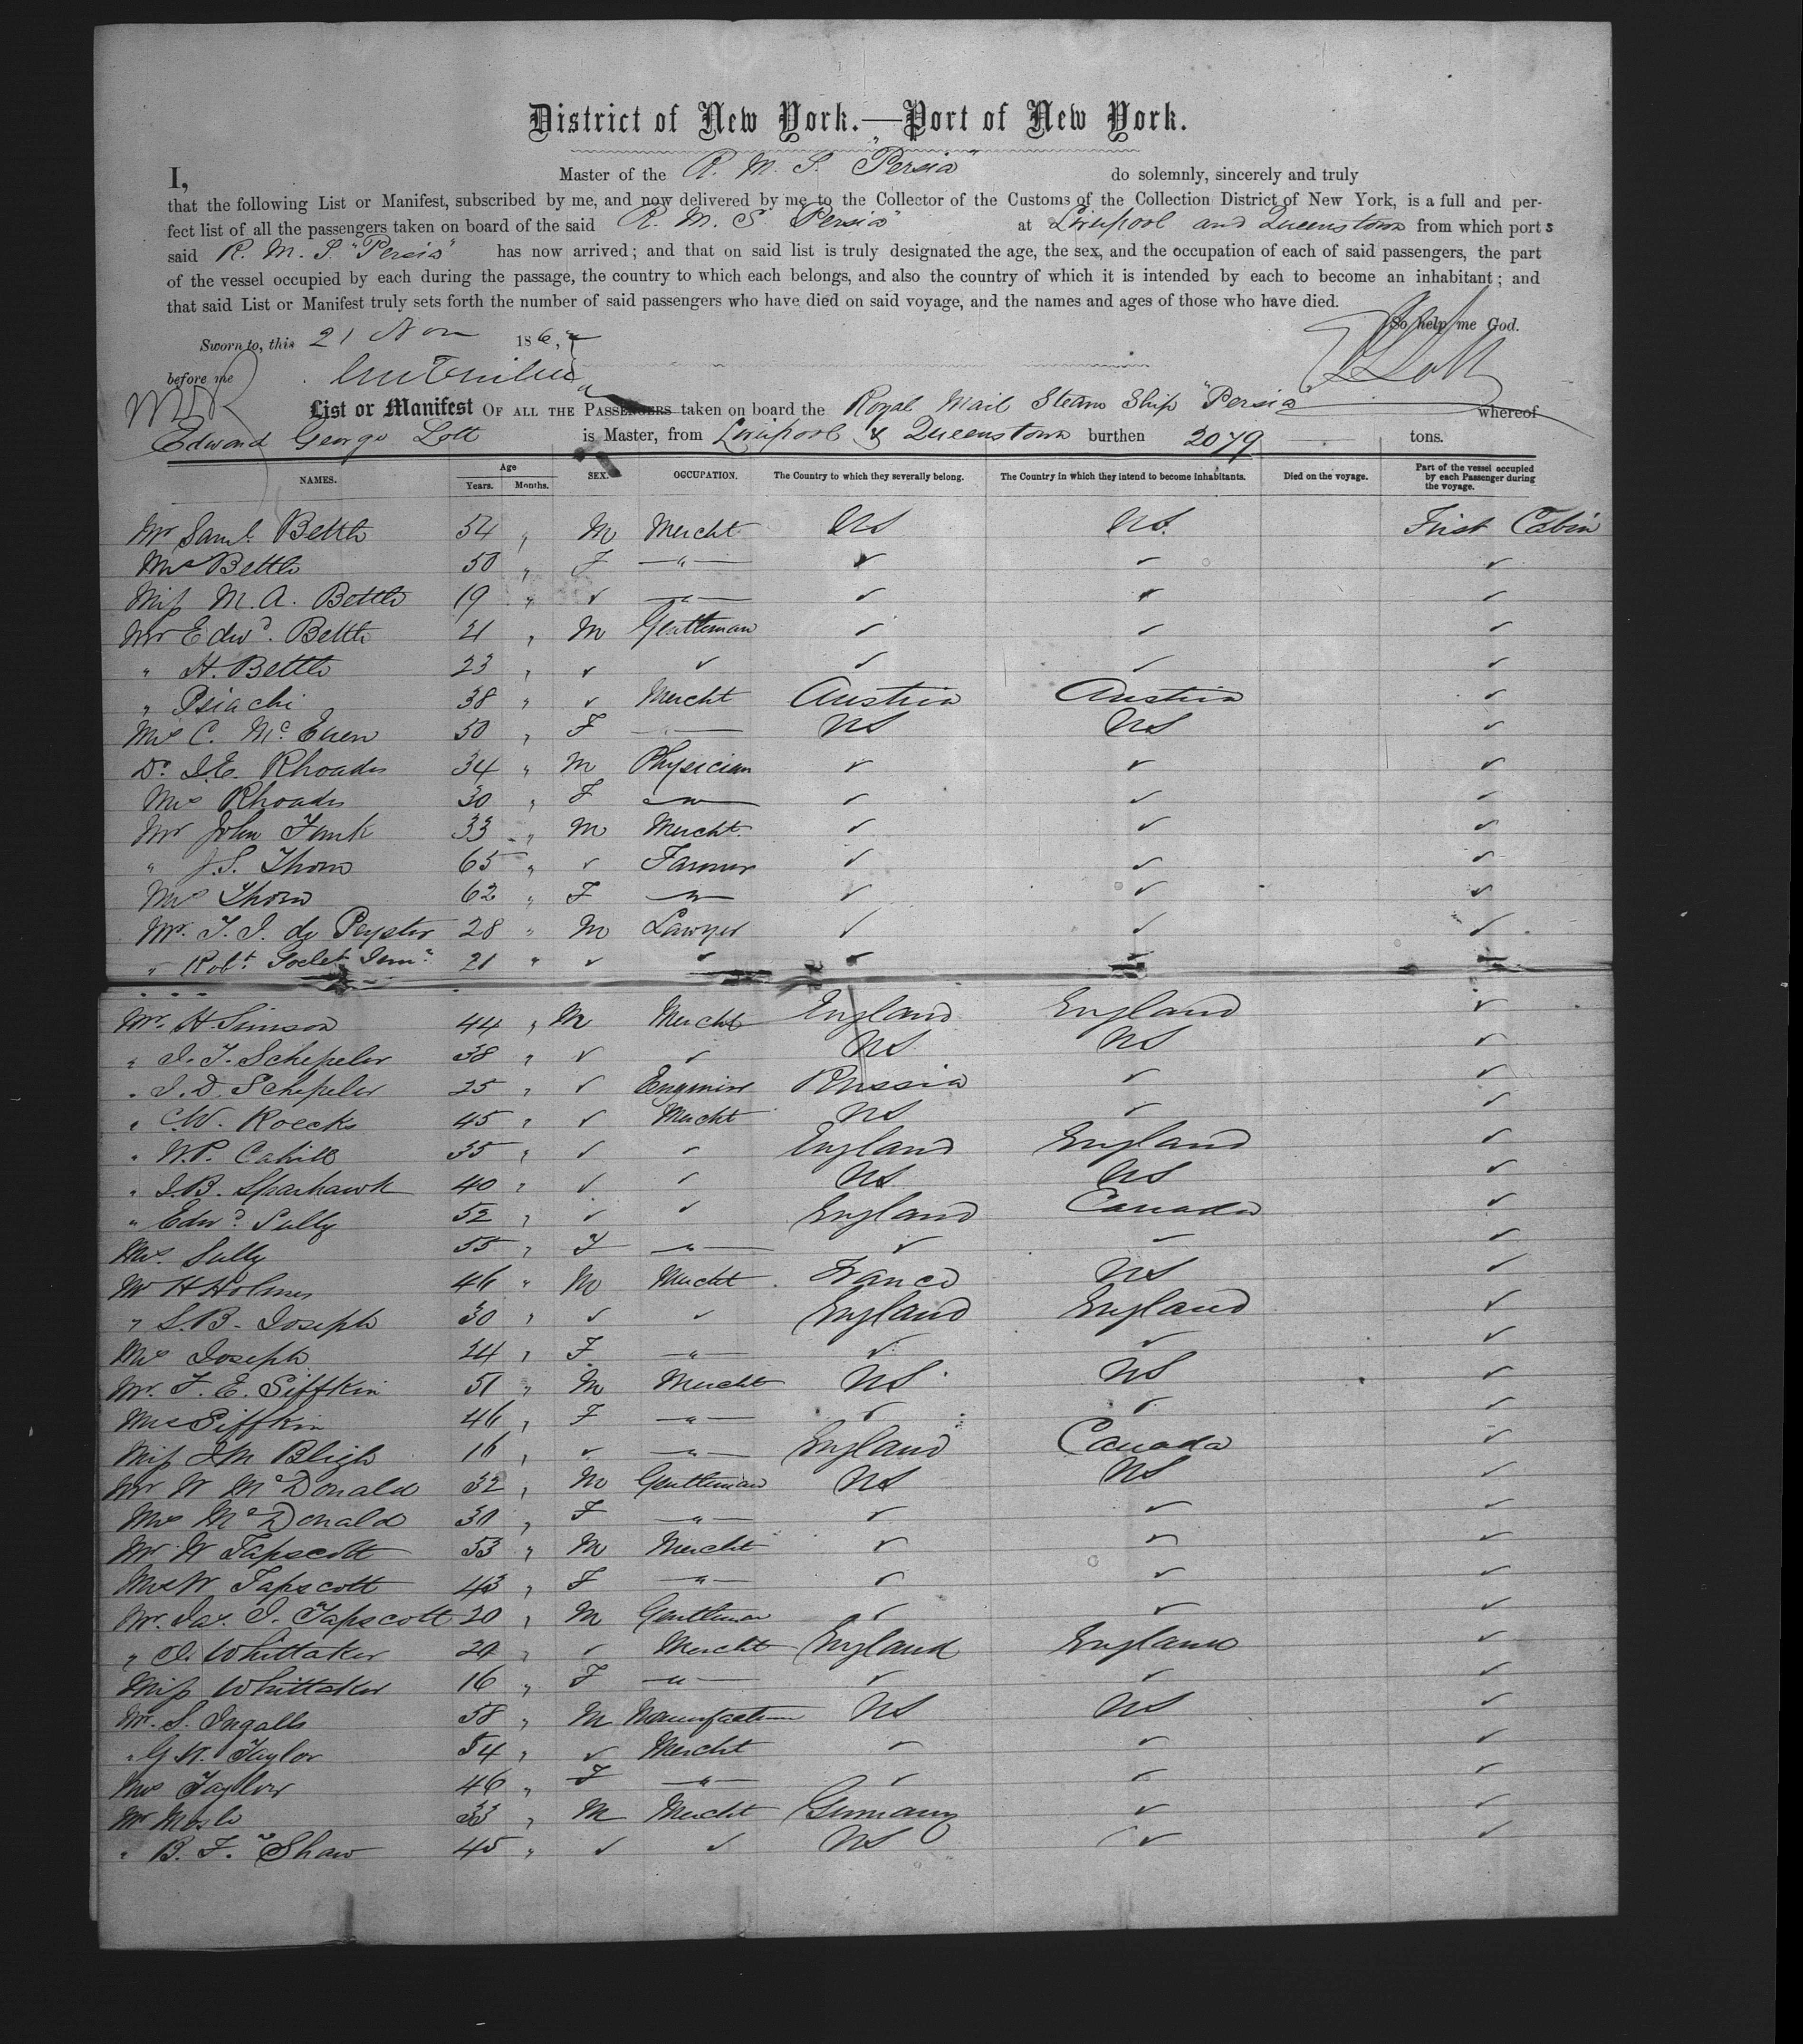 District of New York.—Port of New York.
I, Master of the R. M. S. "Persia" do solemnly, sincerely and truly
that the following List or Manifest, subscribed by me, and now delivered by me to the Collector of the Customs of the Collection District of New York, is a full and per-
fect list of all the passengers taken on board of the said R. M. S "Persia" at Liverpool and Queenstown from which ports
said R. M. S. "Persia" has now arrived; and that on said list is truly designated the age, the sex, and the occupation of each of said passengers, the part
of the vessel occupied by each during the passage, the country to which each belongs, and also the country of which it is intended by each to become an inhabitant; and
that said List or Manifest truly sets forth the number of said passengers who have died on said voyage, and the names and ages of those who have died.
So help me God.
Sworn to, this 21 Nov 186
before me
List or Manifest OF ALL THE PASSENGERS taken on board the Royal Mail Steam Ship "Persia" whereof
Edward George Lott is Master, from Liverpool & Queenstown burthen 2079 tons.
NAMES. Age Years. Months. SEX. OCCUPATION. The Country to which they severally belong. The Country in which they intend to become inhabitants. Died on the voyage. Part of the vessel occupied by each Passenger during the voyage.
Mr Saml. Bettle 54 " M Mercht US US. First Cabin
Mrs Bettle 50 " F —"— ✓ ✓ ✓
Miss M. A. Bettle 19 " ✓ —"— ✓ ✓ ✓
Mr Edwd. Bettle 21 " M Gentleman ✓ ✓ ✓
" H. Bettle 23 " ✓ ✓ ✓ ✓ ✓
" Psiachi 38 " ✓ Mercht Austria Austria ✓
Mrs C. McEuen 50 " F —"— US US ✓
Dr J.E. Rhoads 34 " M Physician ✓ ✓ ✓
Mrs Rhoads 30 " F —"— ✓ ✓ ✓
Mr John Funk 33 " M Mercht. ✓ ✓ ✓
" J. S. Thorn 65 " ✓ Farmer ✓ ✓ ✓
Mrs Thorn 62 " F —"— ✓ ✓ ✓
Mr. J. J. de Peyster 28 " M Lawyer ✓ ✓ ✓
" Robt. Goelet Junr. 21 " ✓ ✓ ✓ ✓ ✓
Mr. H. Simson 44 " M Mercht England England ✓
" J. F. Schepeler 38 " ✓ ✓ US US ✓
" J. D. Schepeler 25 " ✓ Engineer Prussia ✓ ✓
" C.W. Roecks 45 " ✓ Mercht US ✓ ✓
" W.P. Cahill 35 " ✓ ✓ England England ✓
" J.B. Sparhawk 40 " ✓ ✓ US US ✓
" Edwd. Sully 52 " ✓ ✓ England Canada ✓
Mrs. Sully 55 " F —"— ✓ ✓ ✓
Mr H Holmes 46 " M Mercht France US ✓
" S. B. Joseph 30 " ✓ ✓ England England ✓
Mrs Joseph 24 " F —"— ✓ ✓ ✓
Mr. F. E. Siffkin 51 " M Mercht US US ✓
Mrs Siffkin 46 " F —"— ✓ ✓ ✓
Miss J M Bligh 16 " ✓ —"— England Canada ✓
Mr W McDonald 32 " M Gentleman US US ✓
Mrs McDonald 30 " F —"— ✓ ✓ ✓
Mr W Tapscott 53 " M Mercht ✓ ✓ ✓
Mrs W Tapscott 43 " F —"— ✓ ✓ ✓
Mr. Jas. J. Tapscott 20 " M Gentleman ✓ ✓ ✓
" J. Whittaker 24 " ✓ Mercht England England ✓
Miss Whittaker 16 " F —"— ✓ ✓ ✓
Mr. S. Ingalls 58 " M US US ✓
" G. W. Taylor 54 " ✓ Mercht ✓ ✓ ✓
Mrs Taylor 46 " F —"— ✓ ✓ ✓
Mr Mosle 33 " M Mercht Germany ✓ ✓
" B. F. Shaw 45 " ✓ ✓ US ✓ ✓